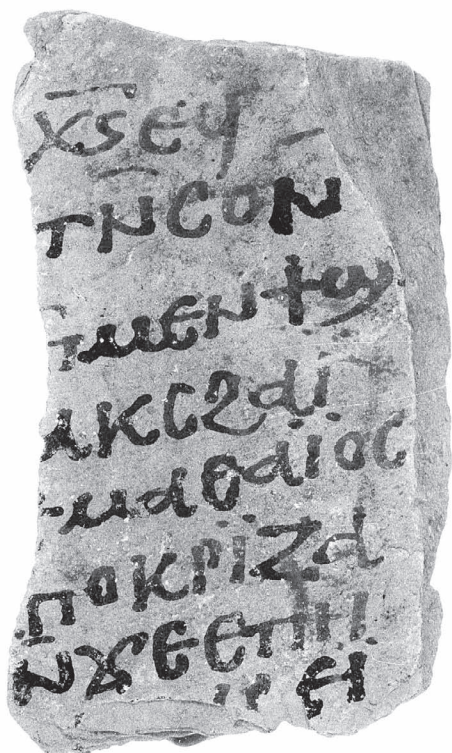 ⲭ̅ⲥⲉϥ
ⲧⲛⲥⲟⲛ̅
ⲧⲙⲉⲛϯϣ
ⲁⲕⲥϩⲁⲓ̈
ⲙⲁⲑⲁⲓ̈ⲟⲥ
ⲡⲟⲕⲣⲓ̈ⲍⲁ
ⲛϫⲉⲉⲡⲏⲓ
ⲉⲓ